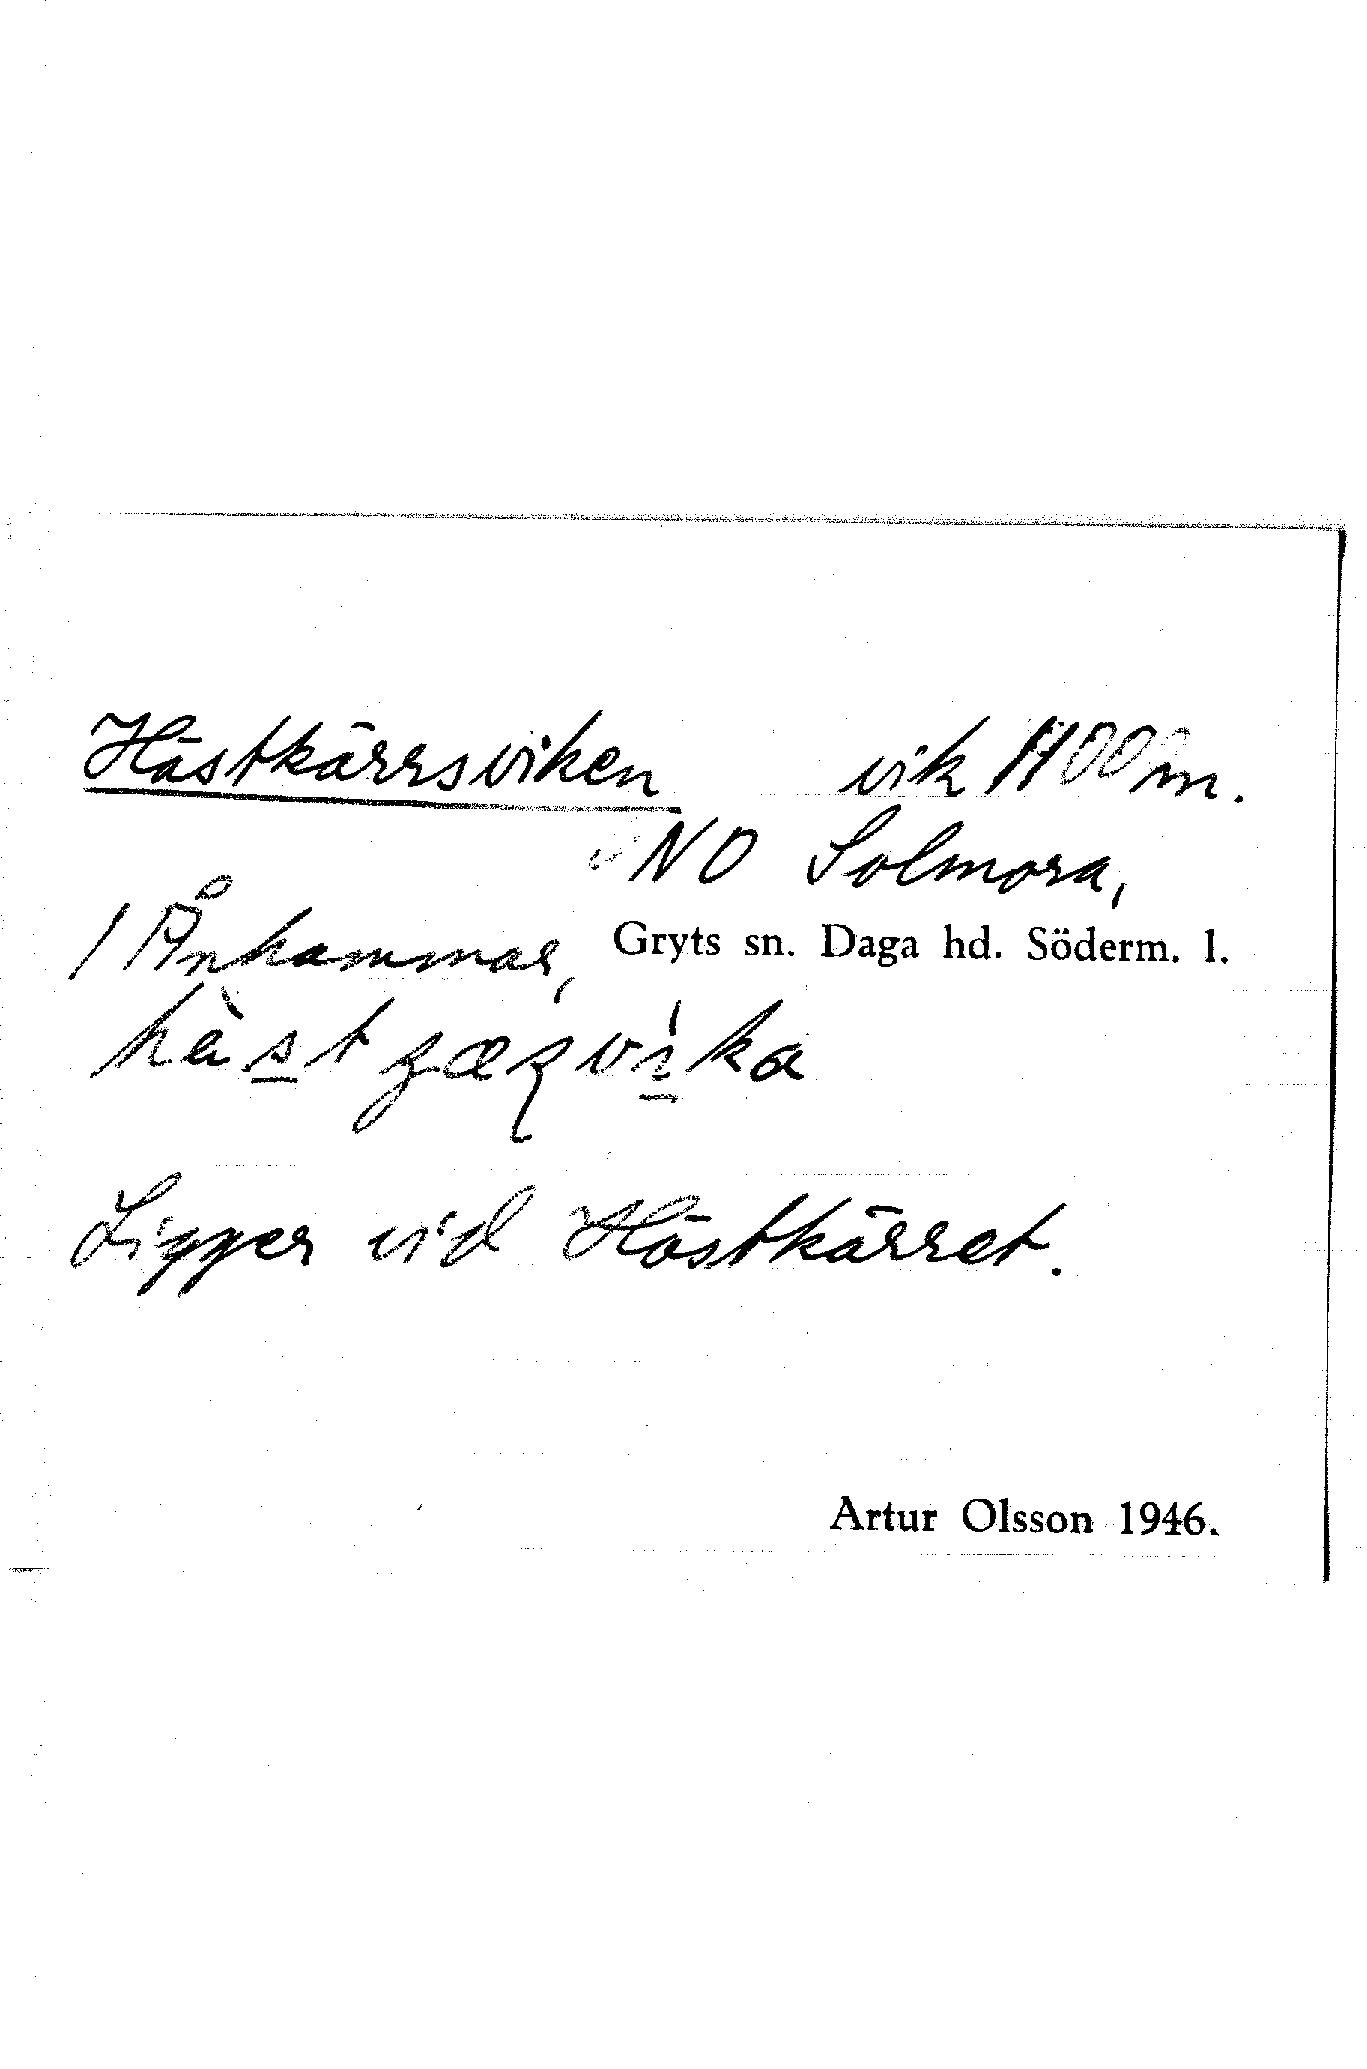 Hästkärrsviken vik 1100 m.
NO Solmora,
/ Ånhammar, Gryts sn. Daga hd. Söderm. l.
Ligger vid Hästkärret.
Artur Olsson 1946.